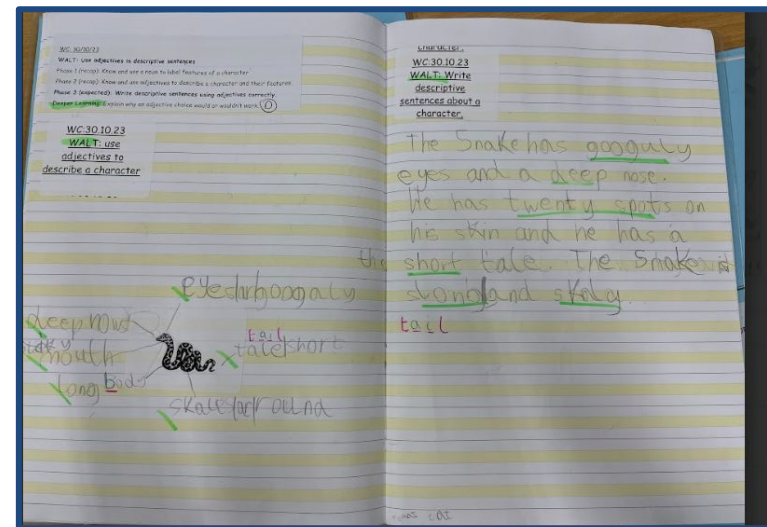 WC: 30/10/23
WALT: Use adjectives in descriptive sentences
Phase 1 (recap): Know and use a noun to label features of a character
Phase 2 (recap): Know and use adjectives to describe a character and their features
Phase 3 (expected): Write descriptive sentences using adjectives correctly.
Deeper Learning: Explain why an adjective choice would or wouldn't work.
WC:30.10.23
WALT: use
adjectives to
describe a character
eyes googaly
deep
mouth
long body
tail
tale short
round
character.
WC:30.10.23
WALT: Write
descriptive
sentences about a
character.
The Snake has googuly
eyes and a deep nose.
He has twenty spots on
his skin and he has a
short tale. The Snake is
long and skaly.
tail